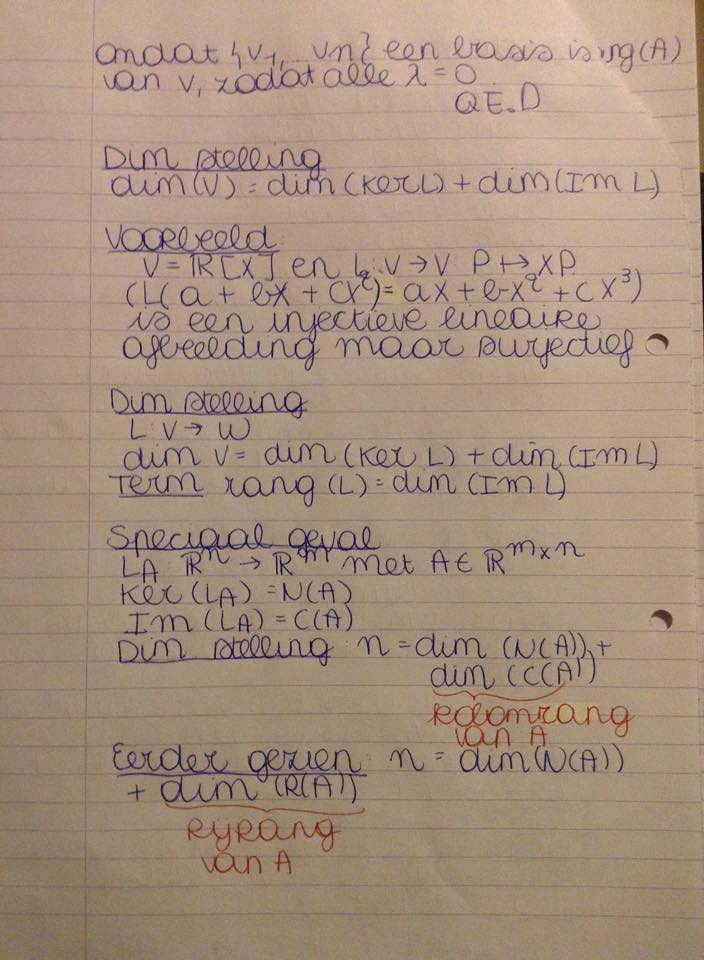 omdat {v1, vn} een basis is
van V, zodat alle λ = 0
QE.D
Dim stelling
dim(V) = dim (Ker L) + dim (Im L)
Voorbeeld:
V = ℝ[X] en L: V → V P ↦ XP
(L(a + bx + cx²) = ax + bx² + cx³)
is een injectieve lineaire
afbeelding maar surjectief
Dim stelling
L: V → W
dim V = dim (Ker L) + dim (Im L)
Term rang (L) = dim (Im L)
Speciaal geval
LA ℝⁿ → ℝᵐ met A ∈ ℝᵐˣⁿ
Ker (LA) = N(A)
Im (LA) = C(A)
Dim stelling n = dim (N(A)) +
dim (C(A))
kolomrang
van A
Eerder gezien: n = dim(N(A))
+ dim (R(A))
rijrang
van A